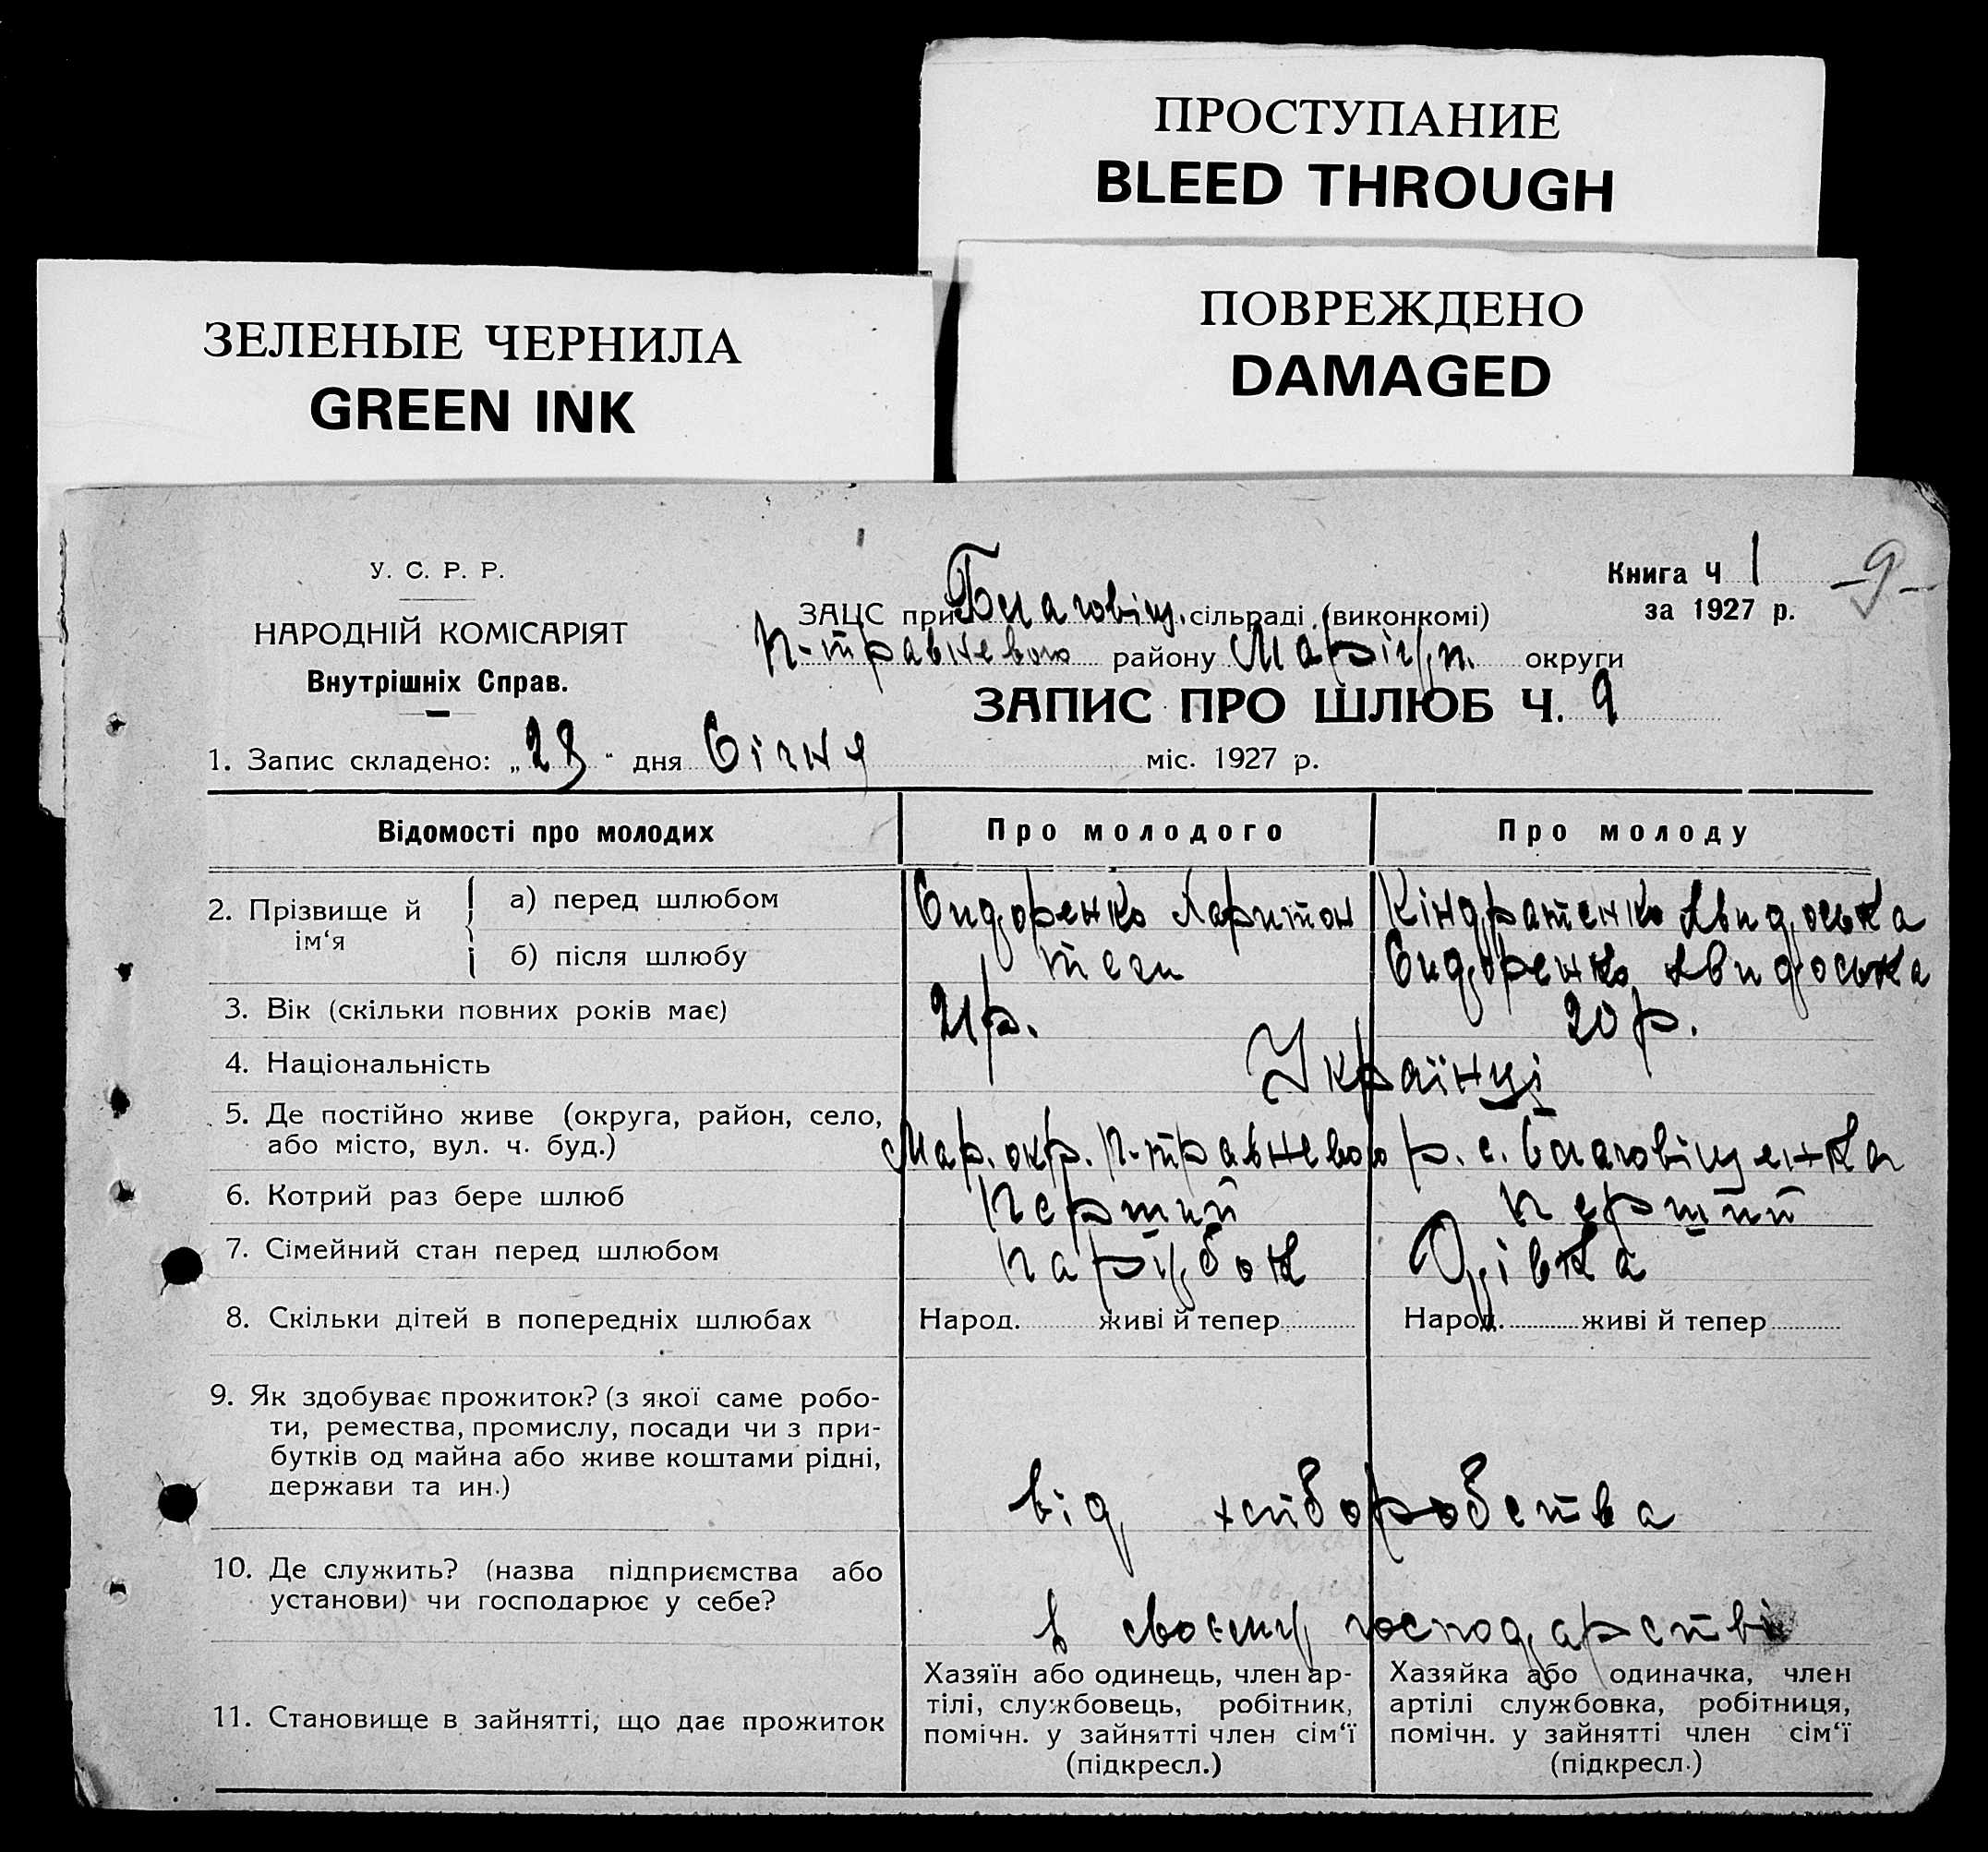 ПРОСТУПАНИЕ
BLEED THROUGH
ЗЕЛЕНЫЕ ЧЕРНИЛА
GREEN INK
ПОВРЕЖДЕНО
DAMAGED
У. С. Р. Р.
НАРОДНІЙ КОМІСАРІЯТ
Внутрішніх Справ.
Книга Ч 1
за 1927 р.
-9-
ЗАЦС при Благовіщ. сільраді (виконкомі)
П-травневого району Маріуп. округи
ЗАПИС ПРО ШЛЮБ Ч. 9
1. Запис складено: „23" дня Січня міс. 1927 р.
Відомості про молодих Про молодого Про молоду
2. Прізвище й ім'я
а) перед шлюбом Сидоренко Харитон Кіндратенко Явидоська
б) після шлюбу теж Сидоренко Явидоська
3. Вік (скільки повних років має) 21р. 20р.
4. Національність Українці
5. Де постійно живе (округа, район, село,
або місто, вул. ч. буд.) Мар. окр. П-травневого р. с. Благовіщенка
6. Котрий раз бере шлюб перший перший
7. Сімейний стан перед шлюбом парубок Дівка
8. Скільки дітей в попередніх шлюбах Народ. живі й тепер Народ. живі й тепер
9. Як здобуває прожиток? (з якої саме робо-
ти, ремества, промислу, посади чи з при-
бутків од майна або живе коштами рідні,
держави та ин.) від хліборобства
10. Де служить? (назва підприємства або
установи) чи господарює у себе? в своєму господарстві
11. Становище в зайнятті, що дає прожиток
Хазяїн або одинець, член ар-
тілі, службовець, робітник,
помічн. у зайнятті член сім'ї
(підкресл.)
Хазяйка або одиначка, член
артілі службовка, робітниця,
помічн. у зайнятті член сім'ї
(підкресл.)